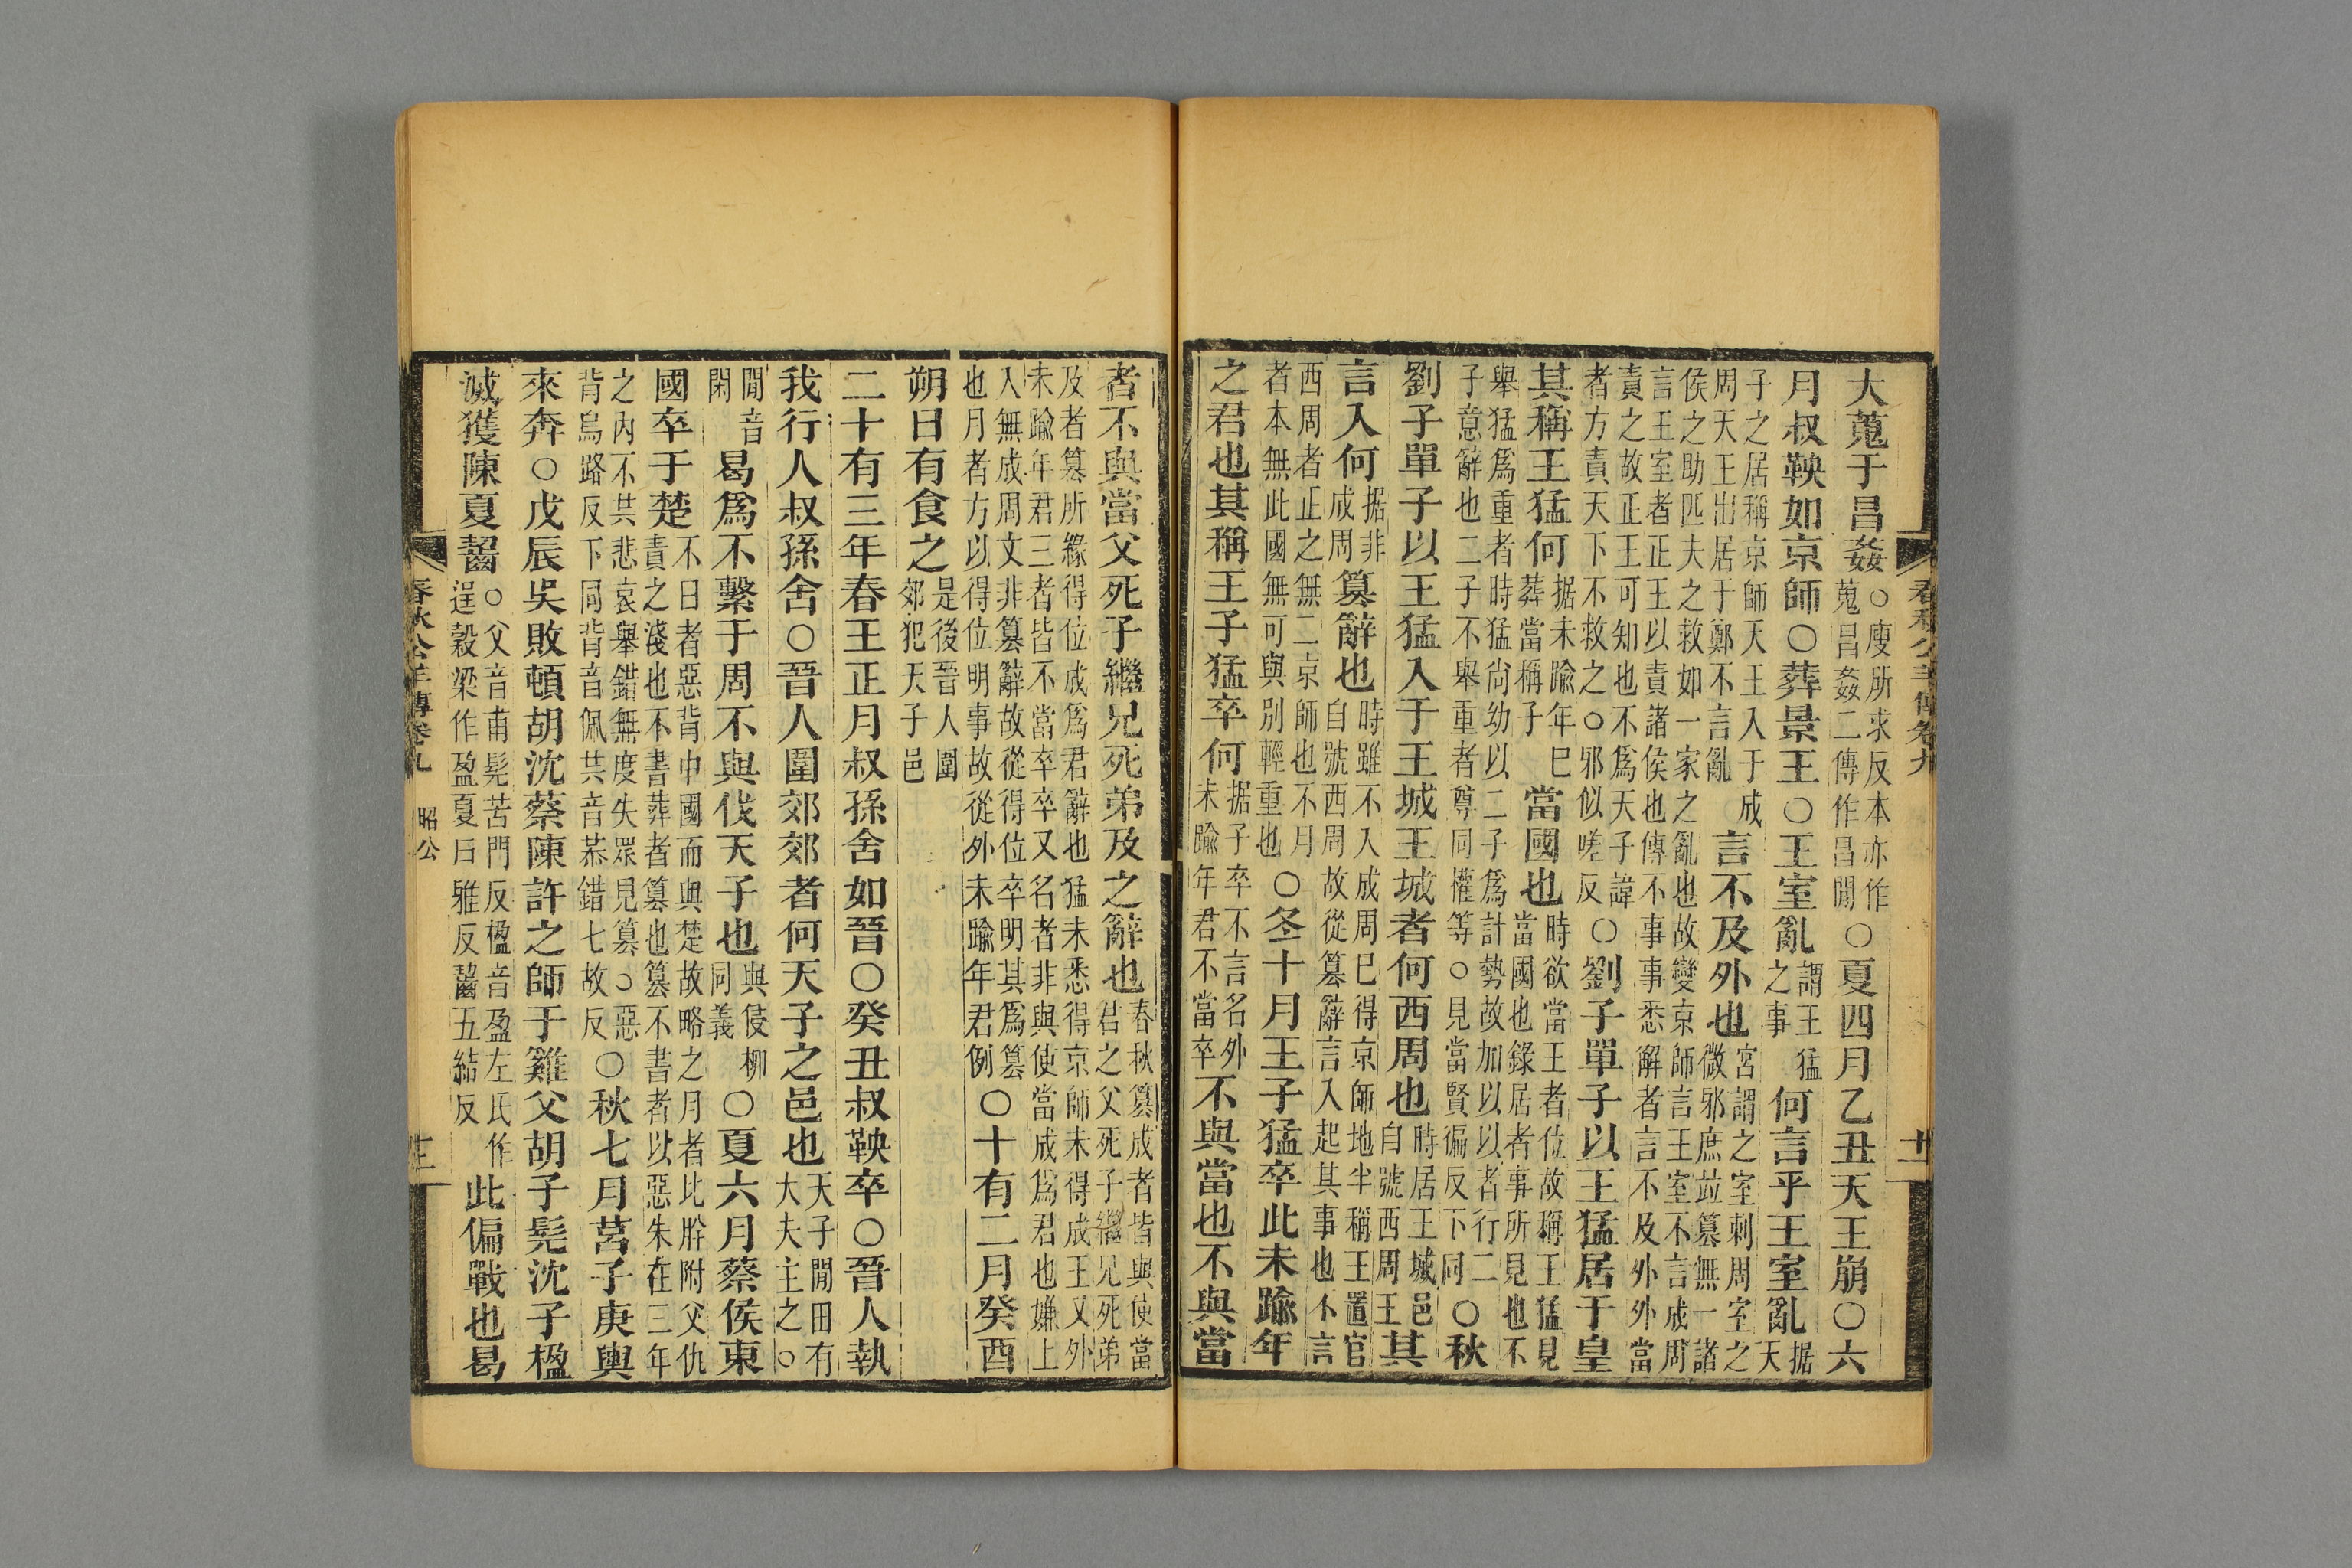 大蒐于昌姦○廋所求反本亦作蒐昌姦二傳作昌閒○夏四月乙丑天王崩○六
月叔鞅如京師○葬景王○王室亂謂王猛之事何言乎王室亂据天
子之居稱京師天王入于成周天王出居于鄭不言亂言不及外也宮謂之室刺周室之微邪庶竝篡無一諸
侯之助匹夫之救如一家之亂也故變京師言王室不言成周言王室者正王以責諸侯也傳不事事悉解者言不及外外當
責之故正王可知也不爲天子諱者方責天下不救之○邪似嗟反○劉子單子以王猛居于皇
其稱王猛何据未踰年巳葬當稱子當國也時欲當王者位故稱王猛見當國也錄居者事所見也不
舉猛爲重者時猛尙幼以二子爲計勢故加以以者行二子意辭也二子不舉重者尊同權等○見當賢徧反下同○秋
劉子單子以王猛入于王城王城者何西周也時居王城邑自號西周王其
言入何据非成周篡辭也時雖不入成周巳得京師地半稱王置官自號西周故從篡辭言入起其事也不言
西周者正之無二京師也不月者本無此國無可與別輕重也○冬十月王子猛卒此未踰年
之君也其稱王子猛卒何据子卒不言名外未踰年君不當卒不與當也不與當
春秋公羊傳卷九
者不與當父死子繼兄死弟及之辭也春秋篡成者皆與使當君之父死子繼兄死弟
及者篡所緣得位成爲君辭也猛未悉得京師未得成王又外未踰年君三者皆不當卒卒又名者非與使當成爲君也嫌上
入無成周文非篡辭故從得位卒明其爲篡也月者方以得位明事故從外未踰年君例○十有二月癸酉
朔日有食之是後晉人圍郊犯天子邑
二十有三年春王正月叔孫舍如晉○癸丑叔鞅卒○晉人執
我行人叔孫舍○晉人圍郊郊者何天子之邑也天子閒田有大夫主之○
閒音閑曷爲不繫于周不與伐天子也與侵柳同義○夏六月蔡侯東
國卒于楚不日者惡背中國而與楚故略之月者比肸附父仇責之淺也不書葬者篡也篡不書者以惡朱在三年
之內不共悲哀舉錯無度失眾見篡○惡背烏路反下同背音佩共音恭錯七故反○秋七月莒子庚輿
來奔○戊辰吳敗頓胡沈蔡陳許之師于雞父胡子髡沈子楹
滅獲陳夏齧○父音甫髡苦門反楹音盈左氏作逞穀梁作盈夏戶雅反齧五結反此偏戰也曷
春秋公羊傳卷九
昭公